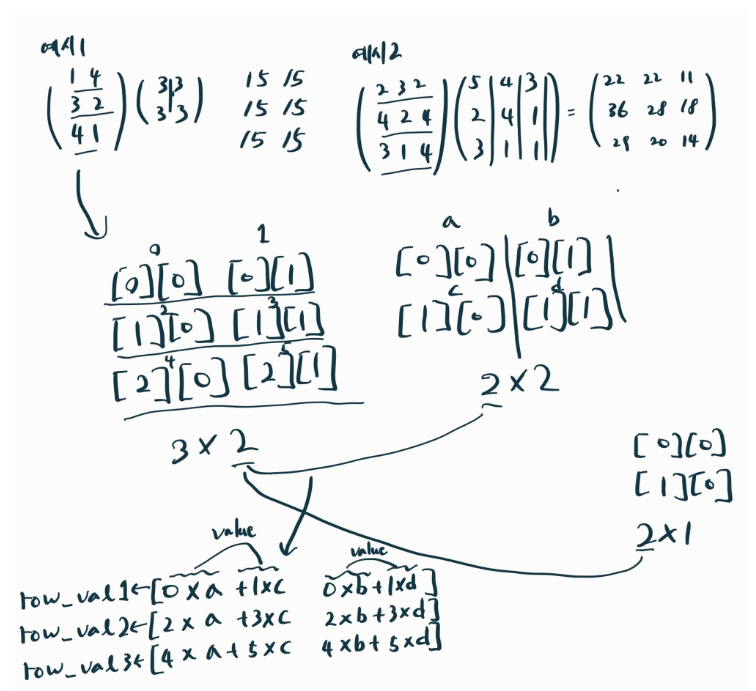 예시1
1 4
3 2
4 1
3 3
3 3
15 15
15 15
15 15
예시2
2 3 2
4 2 4
3 1 4
5 4 3
2 4 1
3 1 1
=
22 22 11
36 28 18
29 20 14
0 1
[0][0] [0][1]
2 3
[1][0] [1][1]
4 5
[2][0] [2][1]
3 × 2
a b
[0][0] [0][1]
c d
[1][0] [1][1]
2 × 2
[0][0]
[1][0]
2×1
value value
row_val1←[0×a +1×c 0×b+1×d]
row_val2←[2×a +3×c 2×b+3×d]
row_val3←[4×a+5×c 4×b+5×d]